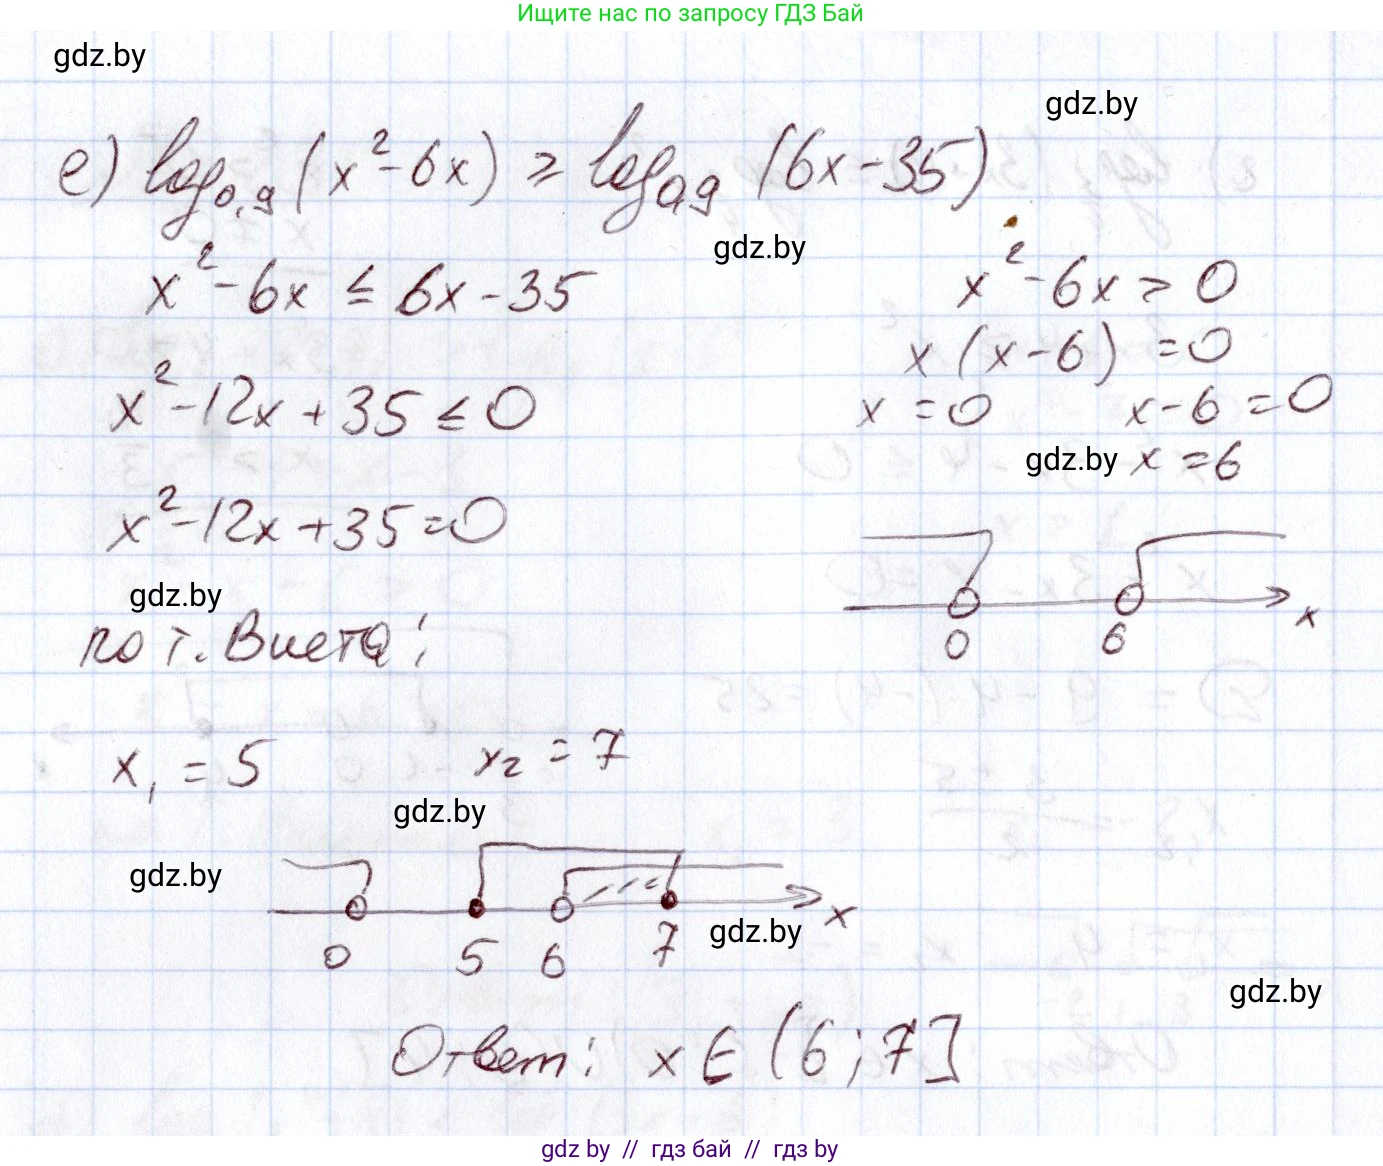 Ищите нас по запросу ГДЗ Бай
gdz.by
gdz.by
е) log₀,₉ (x² - 6x) ≥ log₀,₉ (6x - 35)
gdz.by
x² - 6x ≤ 6x - 35
x² - 12x + 35 ≤ 0
x² - 12x + 35 = 0
gdz.by
по т. Виета:
x₁ = 5 x₂ = 7
x² - 6x > 0
x (x - 6) = 0
x = 0 x - 6 = 0
gdz.by x = 6
0 6 x
gdz.by
gdz.by
0 5 6 7 x
gdz.by
gdz.by
Ответ: x ∈ (6; 7]
gdz by // гдз бай // гдз by